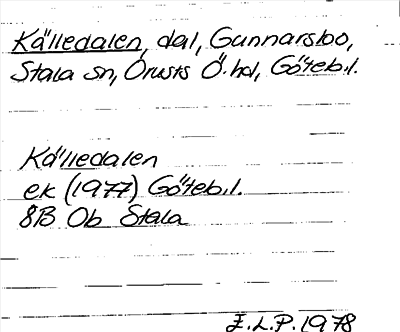 Källedalen, dal, Gunnarsbo,
Stala sn, Orusts Ö. hd, Göteb.l.
Källedalen
ek (1977) Göteb.l.
8B Ob Stala
E.L.P. 1978